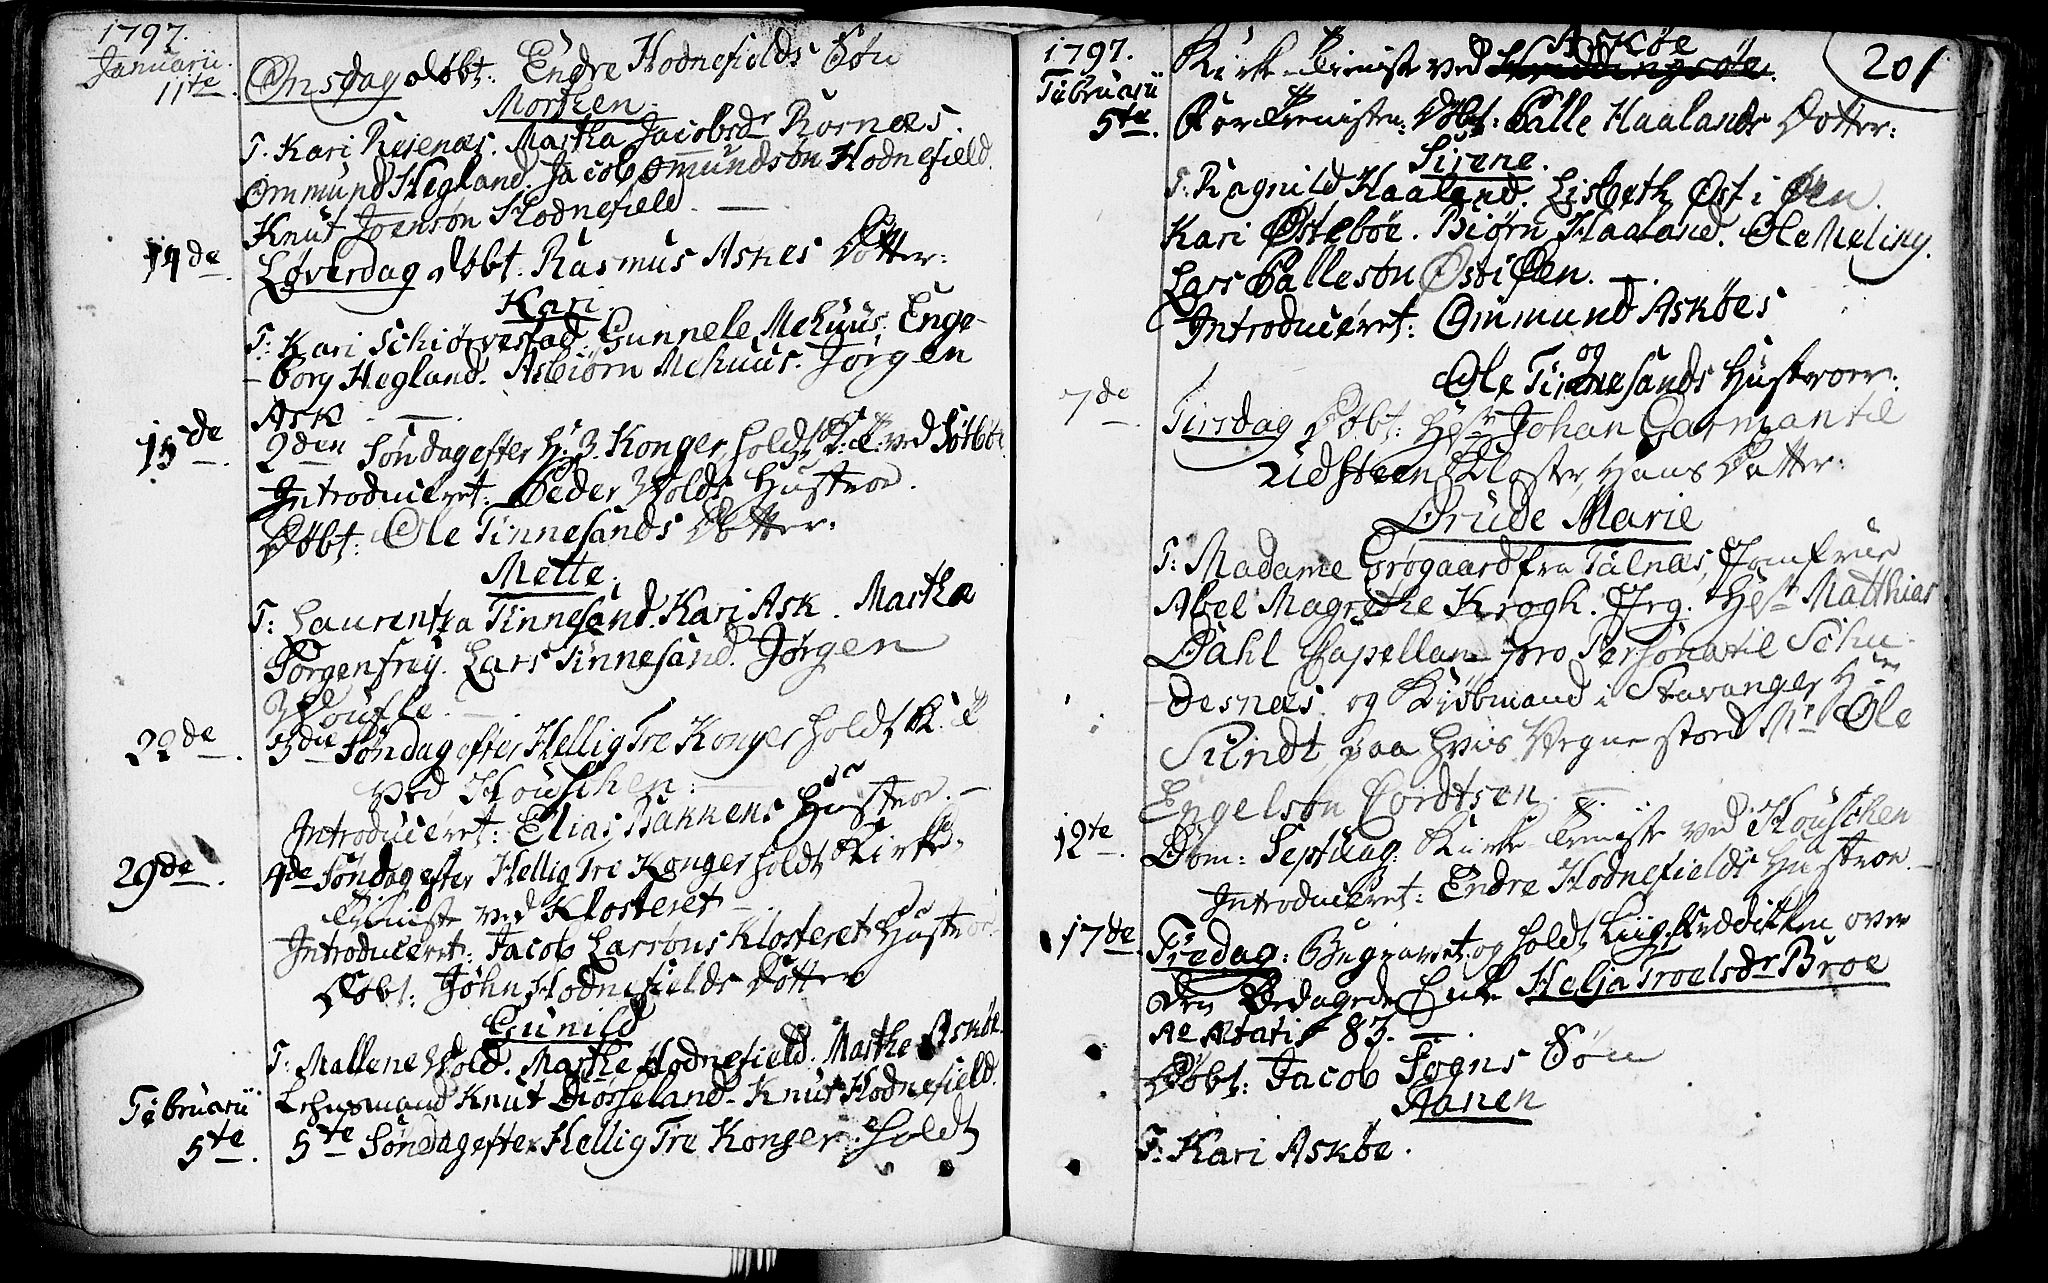 1797.
Januarii
11te. Onsdag døbt: Endre Hodnefields Søn
Morthen.
T. Kari Reienæs. Martha Jacobsdr Rørnæs.
Ommund Hegland. Jacob Omundsøn Hodnefield.
Knut Joensøn Hodnefield. —
14de. Løverdag døbt. Rasmus Askes Dotter:
Kari
T: Kari Schiørvestad. Gunnele Mehuus. Enge-
-borg Hegland. Asbiørn Mehuus. Jørgen
Ask —
15de. 2den Søndag efter H: 3 Konger, holdt K: T: ved
Introduceret: Peder Wolds Hustroe.
Døbt: Ole Tinnesands Dotter:
Mette.
T: Laurentza Tinnesand. Kari Ask. Martha
Sorgenfrey. Lars Tinnesand. Jørgen
22de. 3die Søndag efter Hellig Tre Konger holdt K: T
ved Houschen: —
Introduceret: Elias Bakkens Hustroe. —
29de. 4de Søndag efter Hellig Tre Konger holdt Kirke-
Tieniste ved Klosteret —
Introduceret: Jacob Larsøns Klosteret Hustroe
Døbt: John Hodnefields Dotter
Gunild
T: Mallene Wold. Marthe Hodnefield. Marthe Askøe.
Lehnsmand Knut Diøsseland. Knut Hodnefield.
Februarii
5te. 5te Søndag efter Hellig Tre Konger. holdt
1797.
Februarii
5te.
201
Askøe
Kirke-Tieniste ved
For Tienisten: Døbt: Palle Haalands Dotter:
Sirene.
T: Ragnild Haaland. Lisbeth Øst i Øen.
Kari Østebøe. Biørn Haaland. Ole Meling.
Lars Pallesøn Øst i Øen. —
Introduceret: Ommund Askøes
og
Ole Tinnesands Hustroer:
7de. Tirsdag Døbt: Hr Johan Garman til
Udsteen Kloster, Hans Dotter:
Drude Marie
T: Madame Grøgaard fra Talnæs, Jomfrue
Abel Magrethe Krogh. Hr Matthias
Dahl Capellan pro Persona til Schu-
-desnæs. og Kiøbmand i Stavanger Hr
Sundt paa hvis Vegne stod Mr Ole
Engelsøn Cordtsen. —
12te. Dom: Septuag: Kirke-Tieniste ved Houschen
Introduceret: Endre Hodnefields Hustroe. —
17de. Fredag: Begravet og holdt Liig-Prædikken over
den Bedagede Enke Helja Troelsdr Broe
Aetatis 83. —
Døbt: Jacob Sogns Søn
Aanen
T: Kari Askøe.